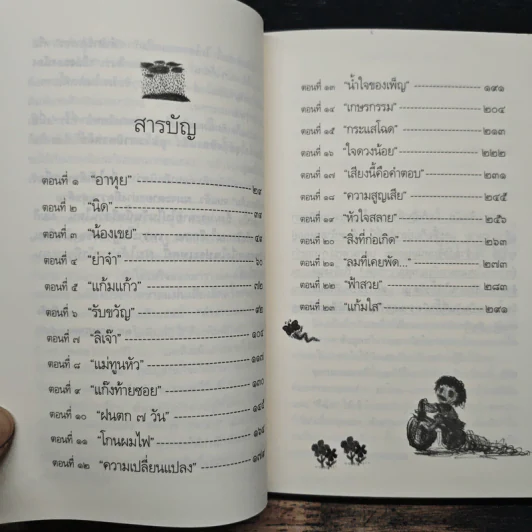 สารบัญ
ตอนที่ ๑ "อาหุย" ๒๔
ตอนที่ ๒ "นิด" ๓๔
ตอนที่ ๓ "น้องเขย" ๔๔
ตอนที่ ๔ "ย่าจ๋า" ๖๐
ตอนที่ ๕ "แก้มแก้ว" ๗๒
ตอนที่ ๖ "รับขวัญ" ๙๒
ตอนที่ ๗ "ลิเจ๊า" ๑๐๔
ตอนที่ ๘ "แม่ทูนหัว" ๑๑๗
ตอนที่ ๙ "แก๊งท้ายซอย" ๑๓๐
ตอนที่ ๑๐ "ฝนตก ๗ วัน" ๑๔๕
ตอนที่ ๑๑ "โกนผมไฟ" ๑๖๔
ตอนที่ ๑๒ "ความเปลี่ยนแปลง"
ตอนที่ ๑๓ "น้ำใจของเพ็ญ" ๑๙๑
ตอนที่ ๑๔ "เกษรกรรม" ๒๐๔
ตอนที่ ๑๕ "กระแสโฉด" ๒๑๓
ตอนที่ ๑๖ "ใจดวงน้อย" ๒๒๒
ตอนที่ ๑๗ "เสียงนี้คือคำตอบ" ๒๓๑
ตอนที่ ๑๘ "ความสูญเสีย" ๒๔๕
ตอนที่ ๑๙ "หัวใจสลาย" ๒๕๖
ตอนที่ ๒๐ "สิ่งที่ก่อเกิด" ๒๖๓
ตอนที่ ๒๑ "ลมที่เคยพัด..." ๒๗๓
ตอนที่ ๒๒ "ฟ้าสวย" ๒๘๓
ตอนที่ ๒๓ "แก้มใส" ๒๙๑